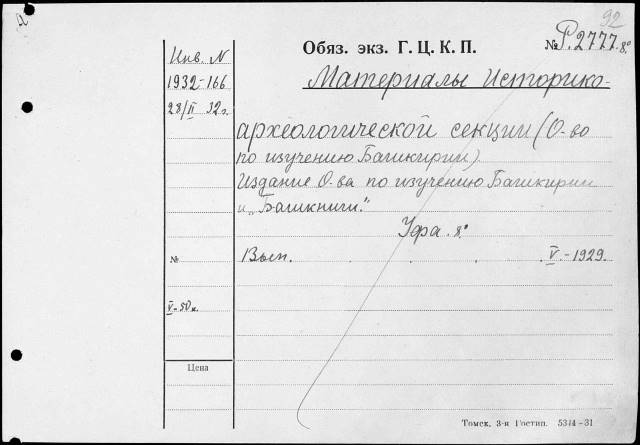 92
Обяз. экз. Г. Ц. К. П.
№ Р.2777. 8°
Инв. N
1932-166
28/II 32 г.
Материалы Историко-
археологической секции (О-во
по изучению Башкирии).
Издание О-ва по изучению Башкирии
и „Башкниги."
Уфа. 8°
№
Вып. . . . . V.-1929.
V-50к.
Цена
Томск, 3-я Гостип. 5314-31